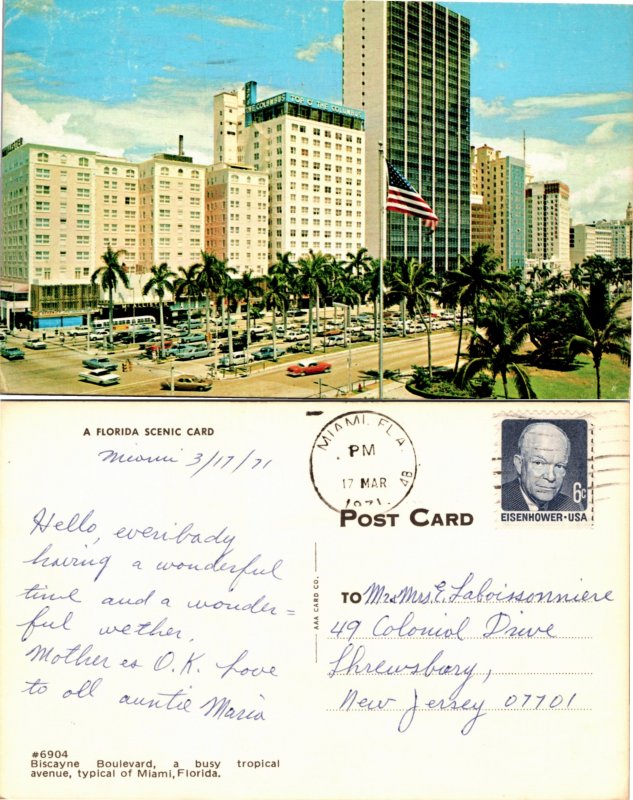 COLUMBUS TOP O' THE COLUMBUS
A FLORIDA SCENIC CARD
Miami 3/17/71
MIAMI, FLA.
PM
17 MAR
1971
48
6c
EISENHOWER·USA
POST CARD
Hello, everibady
having a wonderful
time and a wonder=
ful wether.
Mother es O.K. love
to all auntie Maria
AAA CARD CO.
TO Mr&Mrs E. Laboissonniere
49 Colonial Drive
Shrewsbury,
New Jersey 07701
#6904
Biscayne Boulevard, a busy tropical
avenue, typical of Miami, Florida.